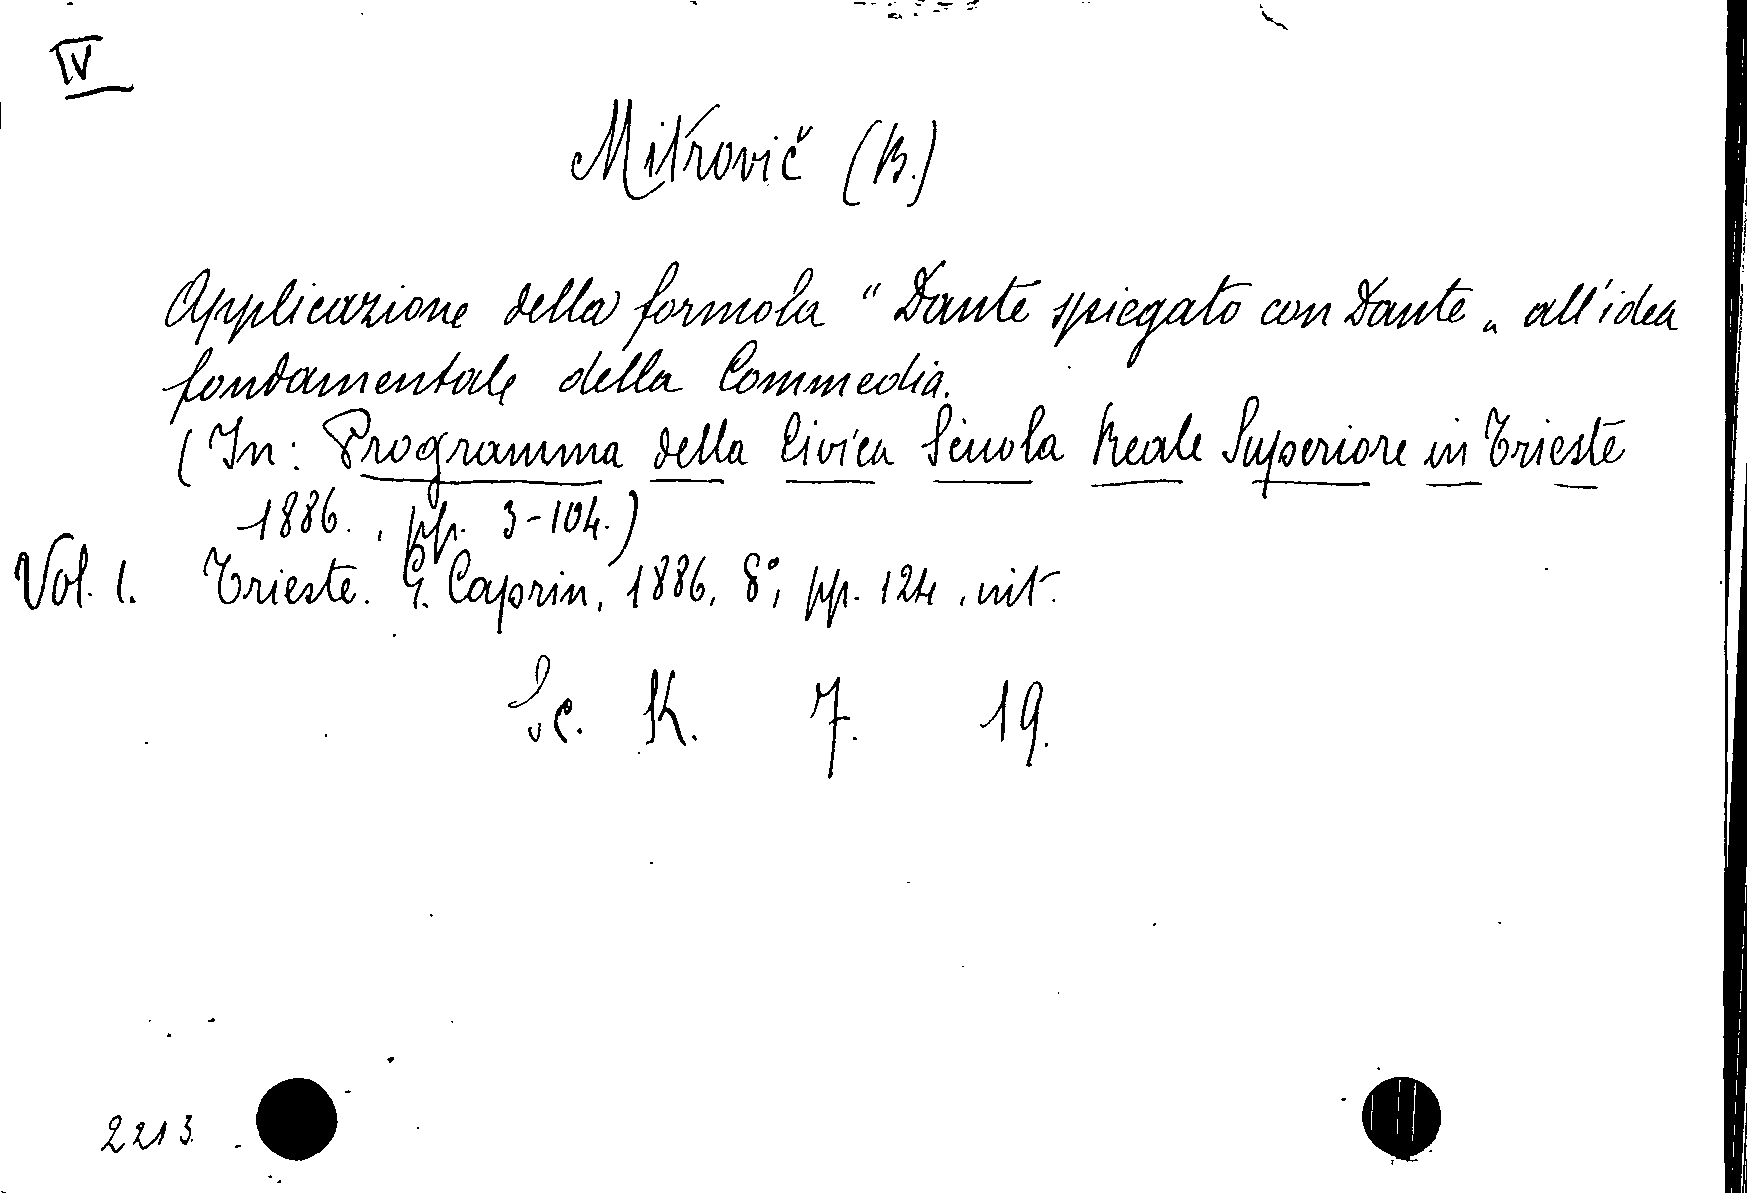 IV
Mitrovič (B.)
Applicazione della formola “Dante spiegato con Dante„ all'idea
fondamentale della Commedia.
(In: Programma della Civica Scuola Reale Superiore in Trieste
1886., pp. 3-104.)
Vol. 1. Trieste. G. Caprin, 1886, 8°, pp. 124, int.
Sc. K. 7. 19.
2213.